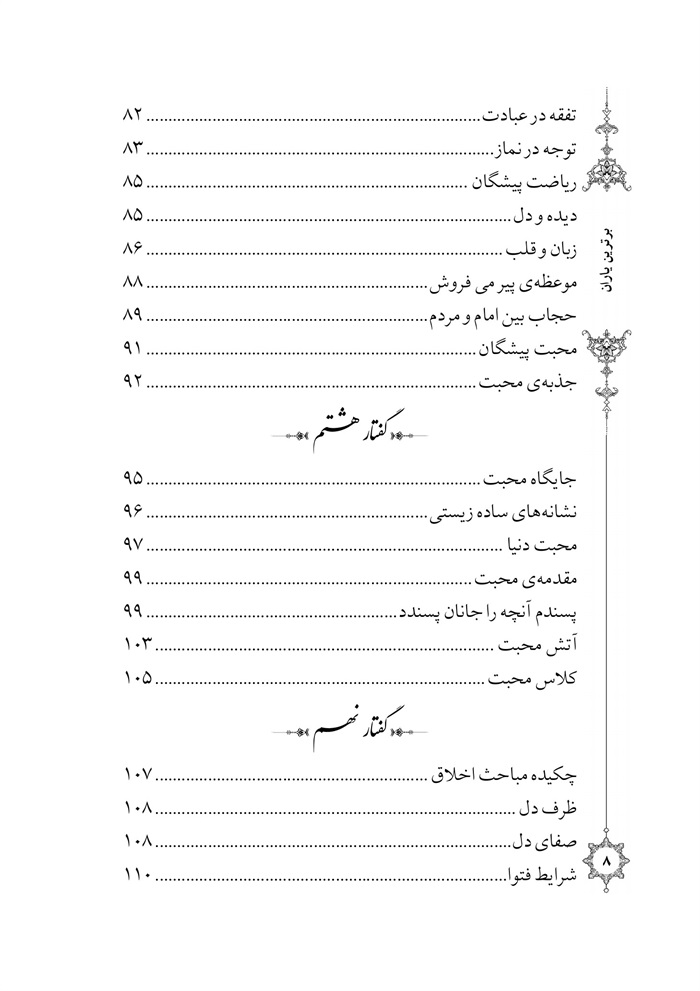 تفقه در عبادت ........ ۸۲
توجه در نماز ........ ۸۳
ریاضت پیشگان ........ ۸۵
دیده و دل ........ ۸۵
زبان و قلب ........ ۸۶
موعظه‌ی پیر می فروش ........ ۸۸
حجاب بین امام و مردم ........ ۸۹
محبت پیشگان ........ ۹۱
جذبه‌ی محبت ........ ۹۲
گفتار هشتم
جایگاه محبت ........ ۹۵
نشانه‌های ساده زیستی ........ ۹۶
محبت دنیا ........ ۹۷
مقدمه‌ی محبت ........ ۹۹
پسندم آنچه را جانان پسندد ........ ۹۹
آتش محبت ........ ۱۰۳
کلاس محبت ........ ۱۰۵
گفتار نهم
چکیده مباحث اخلاق ........ ۱۰۷
ظرف دل ........ ۱۰۸
صفای دل ........ ۱۰۸
شرایط فتوا ........ ۱۱۰
برترین یاران
۸